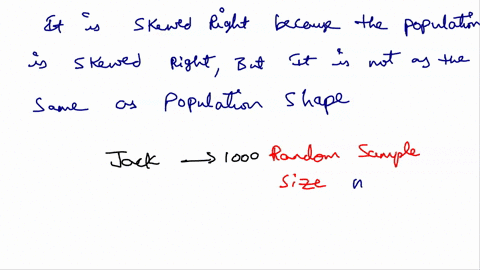 It is skewed Right because the population
is skewed Right, But It is not as the
same as Population Shape
Jack → 1000 Random Sample
Size n